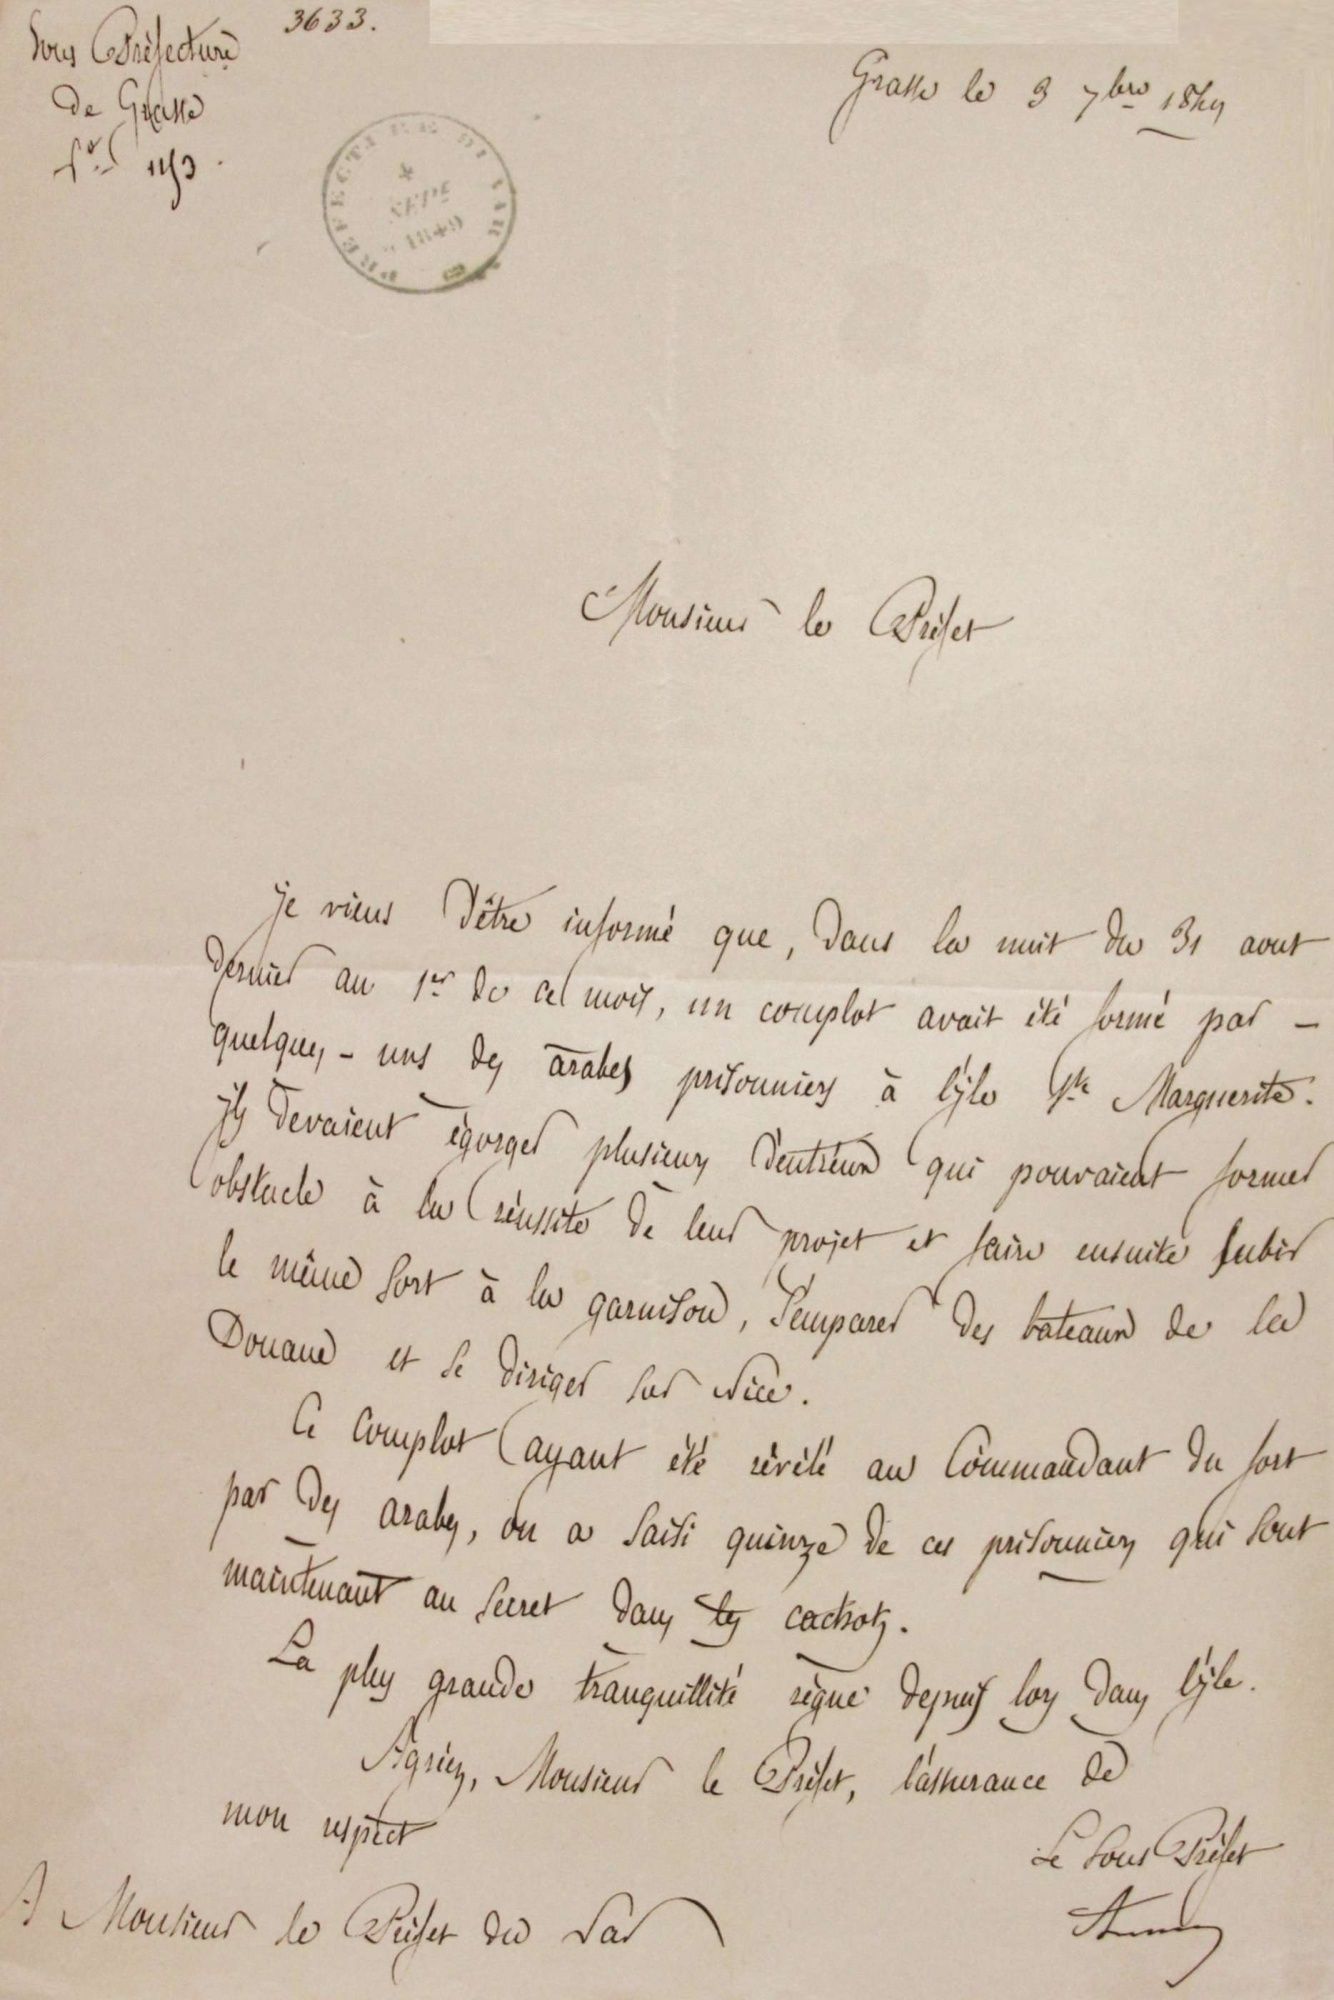 3633.
Sous Préfecture
de Grasse
Grasse le 3 7bre 1849
PREFECTURE DU VAR
4
SEPT
1849
Monsieur le Préfet
je viens d'être informé que, dans la nuit du 31 aout
dernier au 1er de ce mois, un complot avait été formé par -
quelques-uns des arabes prisonniers à l'île Ste Marguerite.
ils devaient égorger plusieurs d'entr'eux qui pouvaient former
obstacle à la réussite de leur projet et faire ensuite subir
le même sort à la garnison, s'emparer des bateaux de la
Douane et se diriger sur Nice.
Ce complot ayant été révélé au Commandant du fort
par des arabes, on a saisi quinze de ces prisonniers qui sont
maintenant au secret dans les cachots.
La plus grande tranquillité règne depuis lors dans l'île.
Agréez, Monsieur le Préfet, l'assurance de
mon respect
Le Sous Préfet
A Monsieur le Préfet du Var